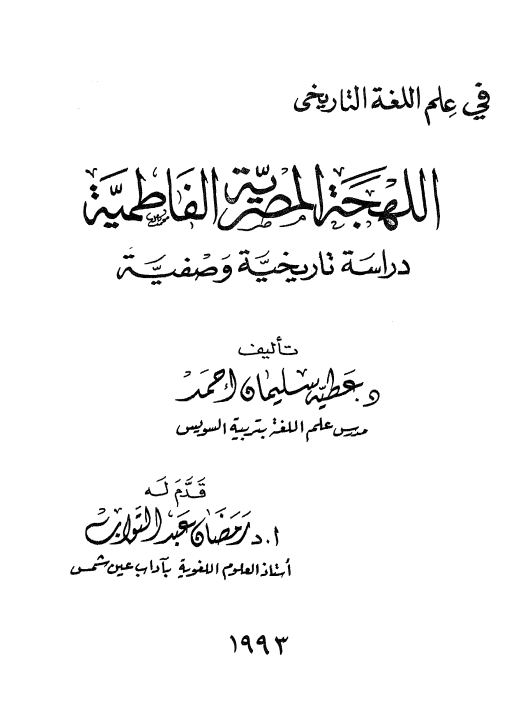 في علم اللغة التاريخى
اللهجة المصرية الفاطمية
دراسة تاريخية وصفية
تأليف
د. عطيه سليمان احمد
مدرس علم اللغة بتربية السويس
قدم له
أ.د رمضان عبد التواب
أستاذ العلوم اللغوية بآداب عين شمس
١٩٩٣